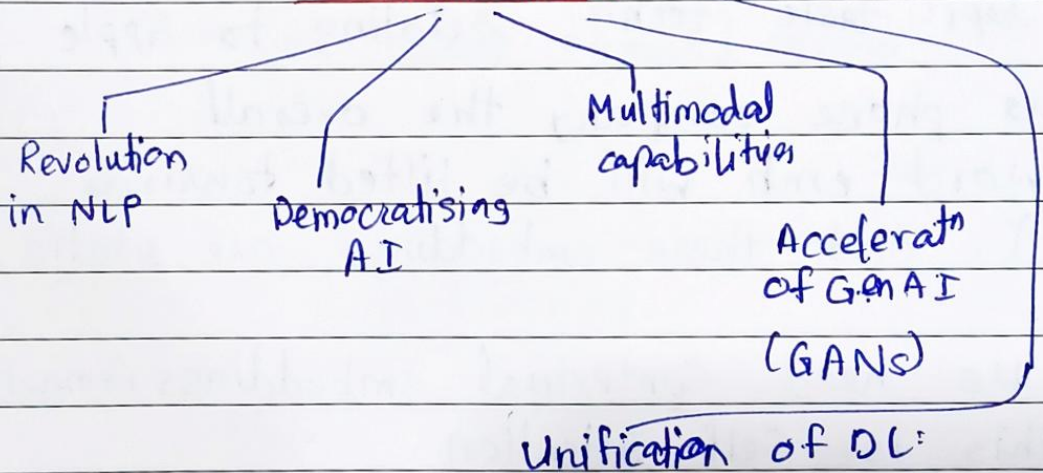 Revolution
in NLP
Democratising
AI
Multimodal
capabilities
Acceleratn
of Gen AI
(GANs)
Unification of DL: